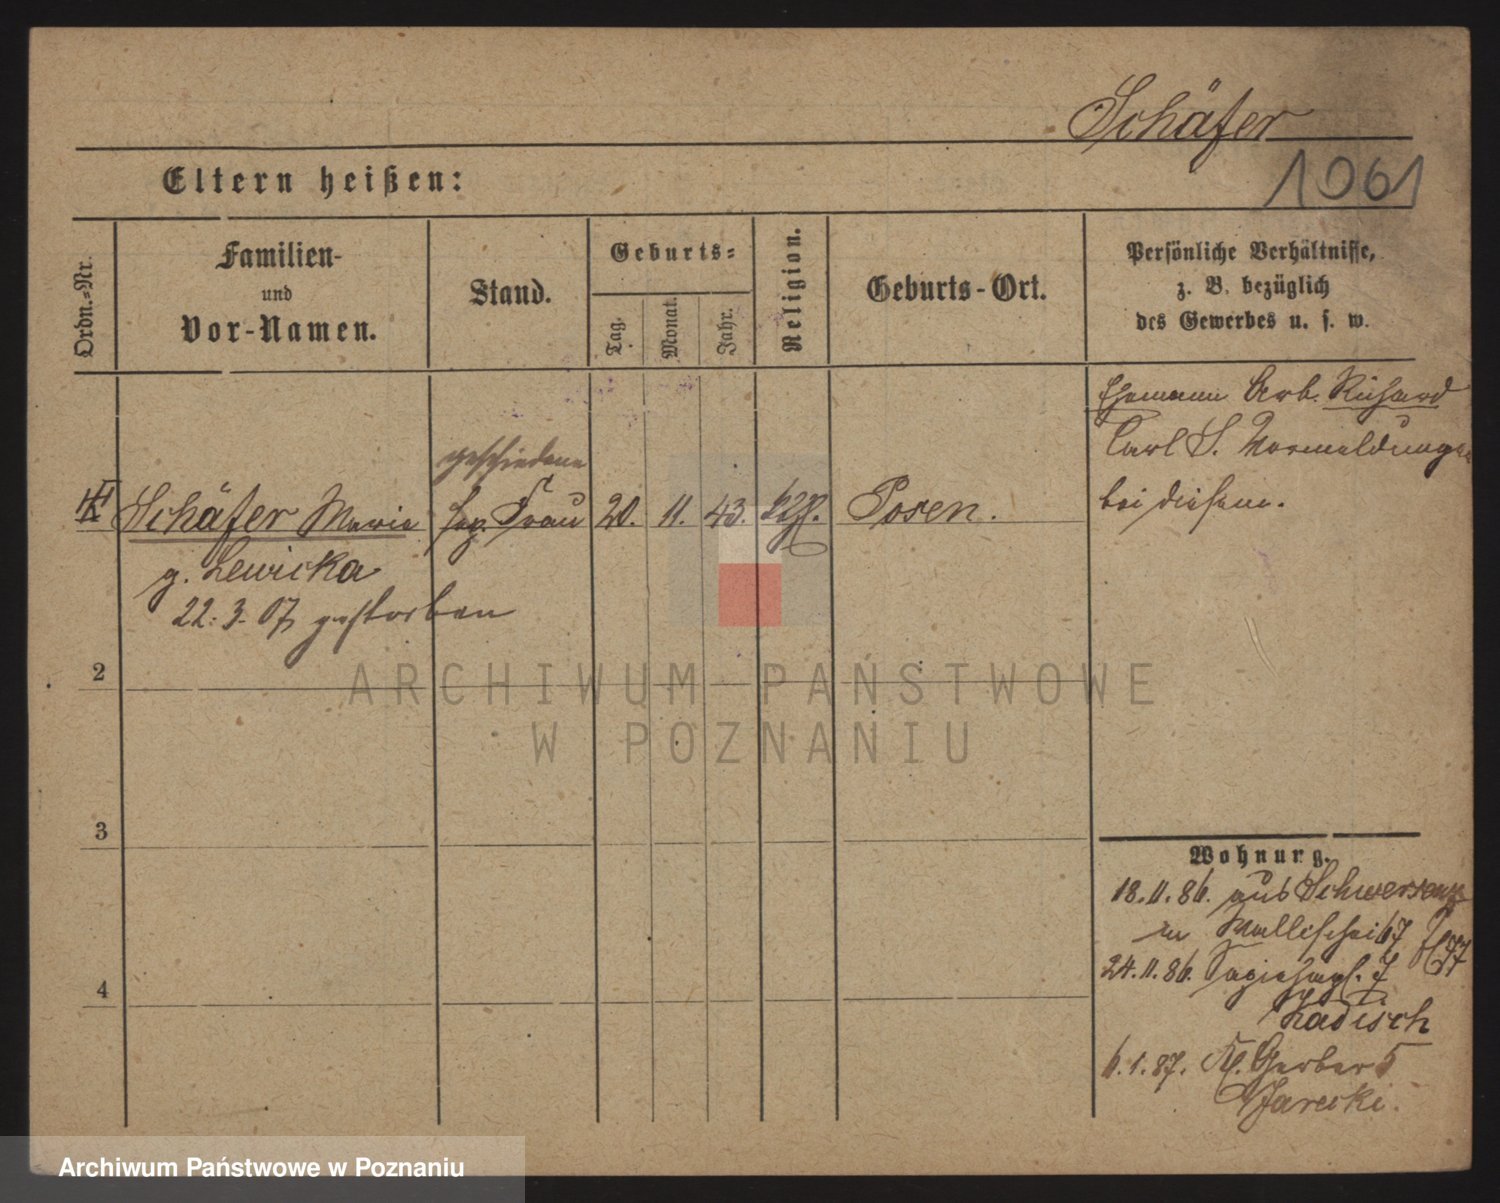 Schäfer
1061
Eltern heißen:
Ordn.=Nr.
Familien-
und
Vor-Namen.
Stand.
Geburts=
Tag.
Monat.
Jahr.
Religion.
Geburts-Ort.
Persönliche Verhältnisse,
z. B. bezüglich
des Gewerbes u. s. w.
Ehemann Arb. Richard
Carl S. Vormeldungen
bei diesem.
geschiedene
Schäfer Marie sep. Frau 20. 11. 43. Posen.
g. Lewicka
22. 3. 07 gestorben
2
3
4
Wohnung.
18. 11. 86. aus Schwersenz
Wallischei 67
24. 11. 86. 7
Kadisch
6. 1. 87. Kl. Gerber 5
Jarecki.
ARCHIWUM PAŃSTWOWE
W POZNANIU
Archiwum Państwowe w Poznaniu